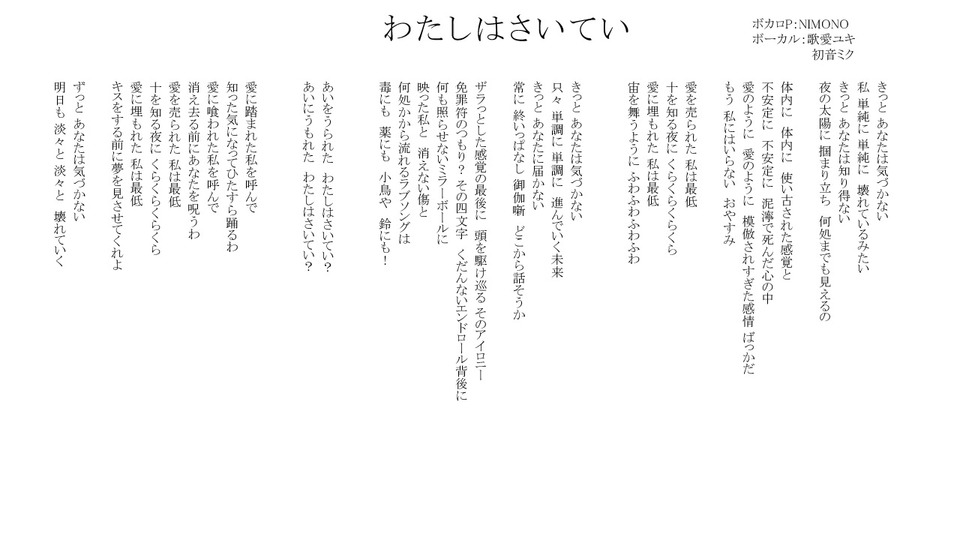 わたしはさいてい
ボカロP:NIMONO
ボーカル:歌愛ユキ
初音ミク
きっと あなたは気づかない
私 単純に 単純に 壊れているみたい
きっと あなたは知り得ない
夜の太陽に 掴まり立ち 何処までも見えるの
体内に 体内に 使い古された感覚と
不安定に 不安定に 泥濘で死んだ心の中
愛のように 愛のように 模倣されすぎた感情 ばっかだ
もう 私にはいらない おやすみ
愛を売られた 私は最低
十を知る夜に くらくらくらくら
愛に埋もれた 私は最低
宙を舞うように ふわふわふわふわ
きっと あなたは気づかない
只々 単調に 単調に 進んでいく未来
きっと あなたに届かない
常に 終いっぱなし 御伽噺 どこから話そうか
ザラっとした感覚の最後に 頭を駆け巡る そのアイロニー
免罪符のつもり? その四文字 くだんないエンドロール背後に
何も照らせないミラーボールに
映った私と 消えない傷と
何処かから流れるラブソングは
毒にも 薬にも 小鳥や 鈴にも!
あいをうられた わたしはさいてい?
あいにうもれた わたしはさいてい?
愛に踏まれた私を呼んで
知った気になってひたすら踊るわ
愛に喰われた私を呼んで
消え去る前にあなたを呪うわ
愛を売られた 私は最低
十を知る夜に くらくらくらくら
愛に埋もれた 私は最低
キスをする前に夢を見させてくれよ
ずっと あなたは気づかない
明日も 淡々と 淡々と 壊れていく